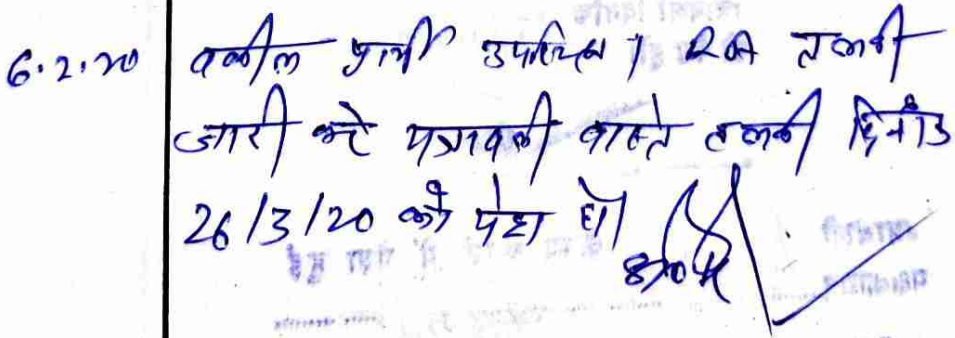 6.2.20 वकील प्रार्थी उपस्थित। RA तलबी
जारी करे पत्रावली वास्ते तलबी दिनांक
26/3/20 को पेश हो।